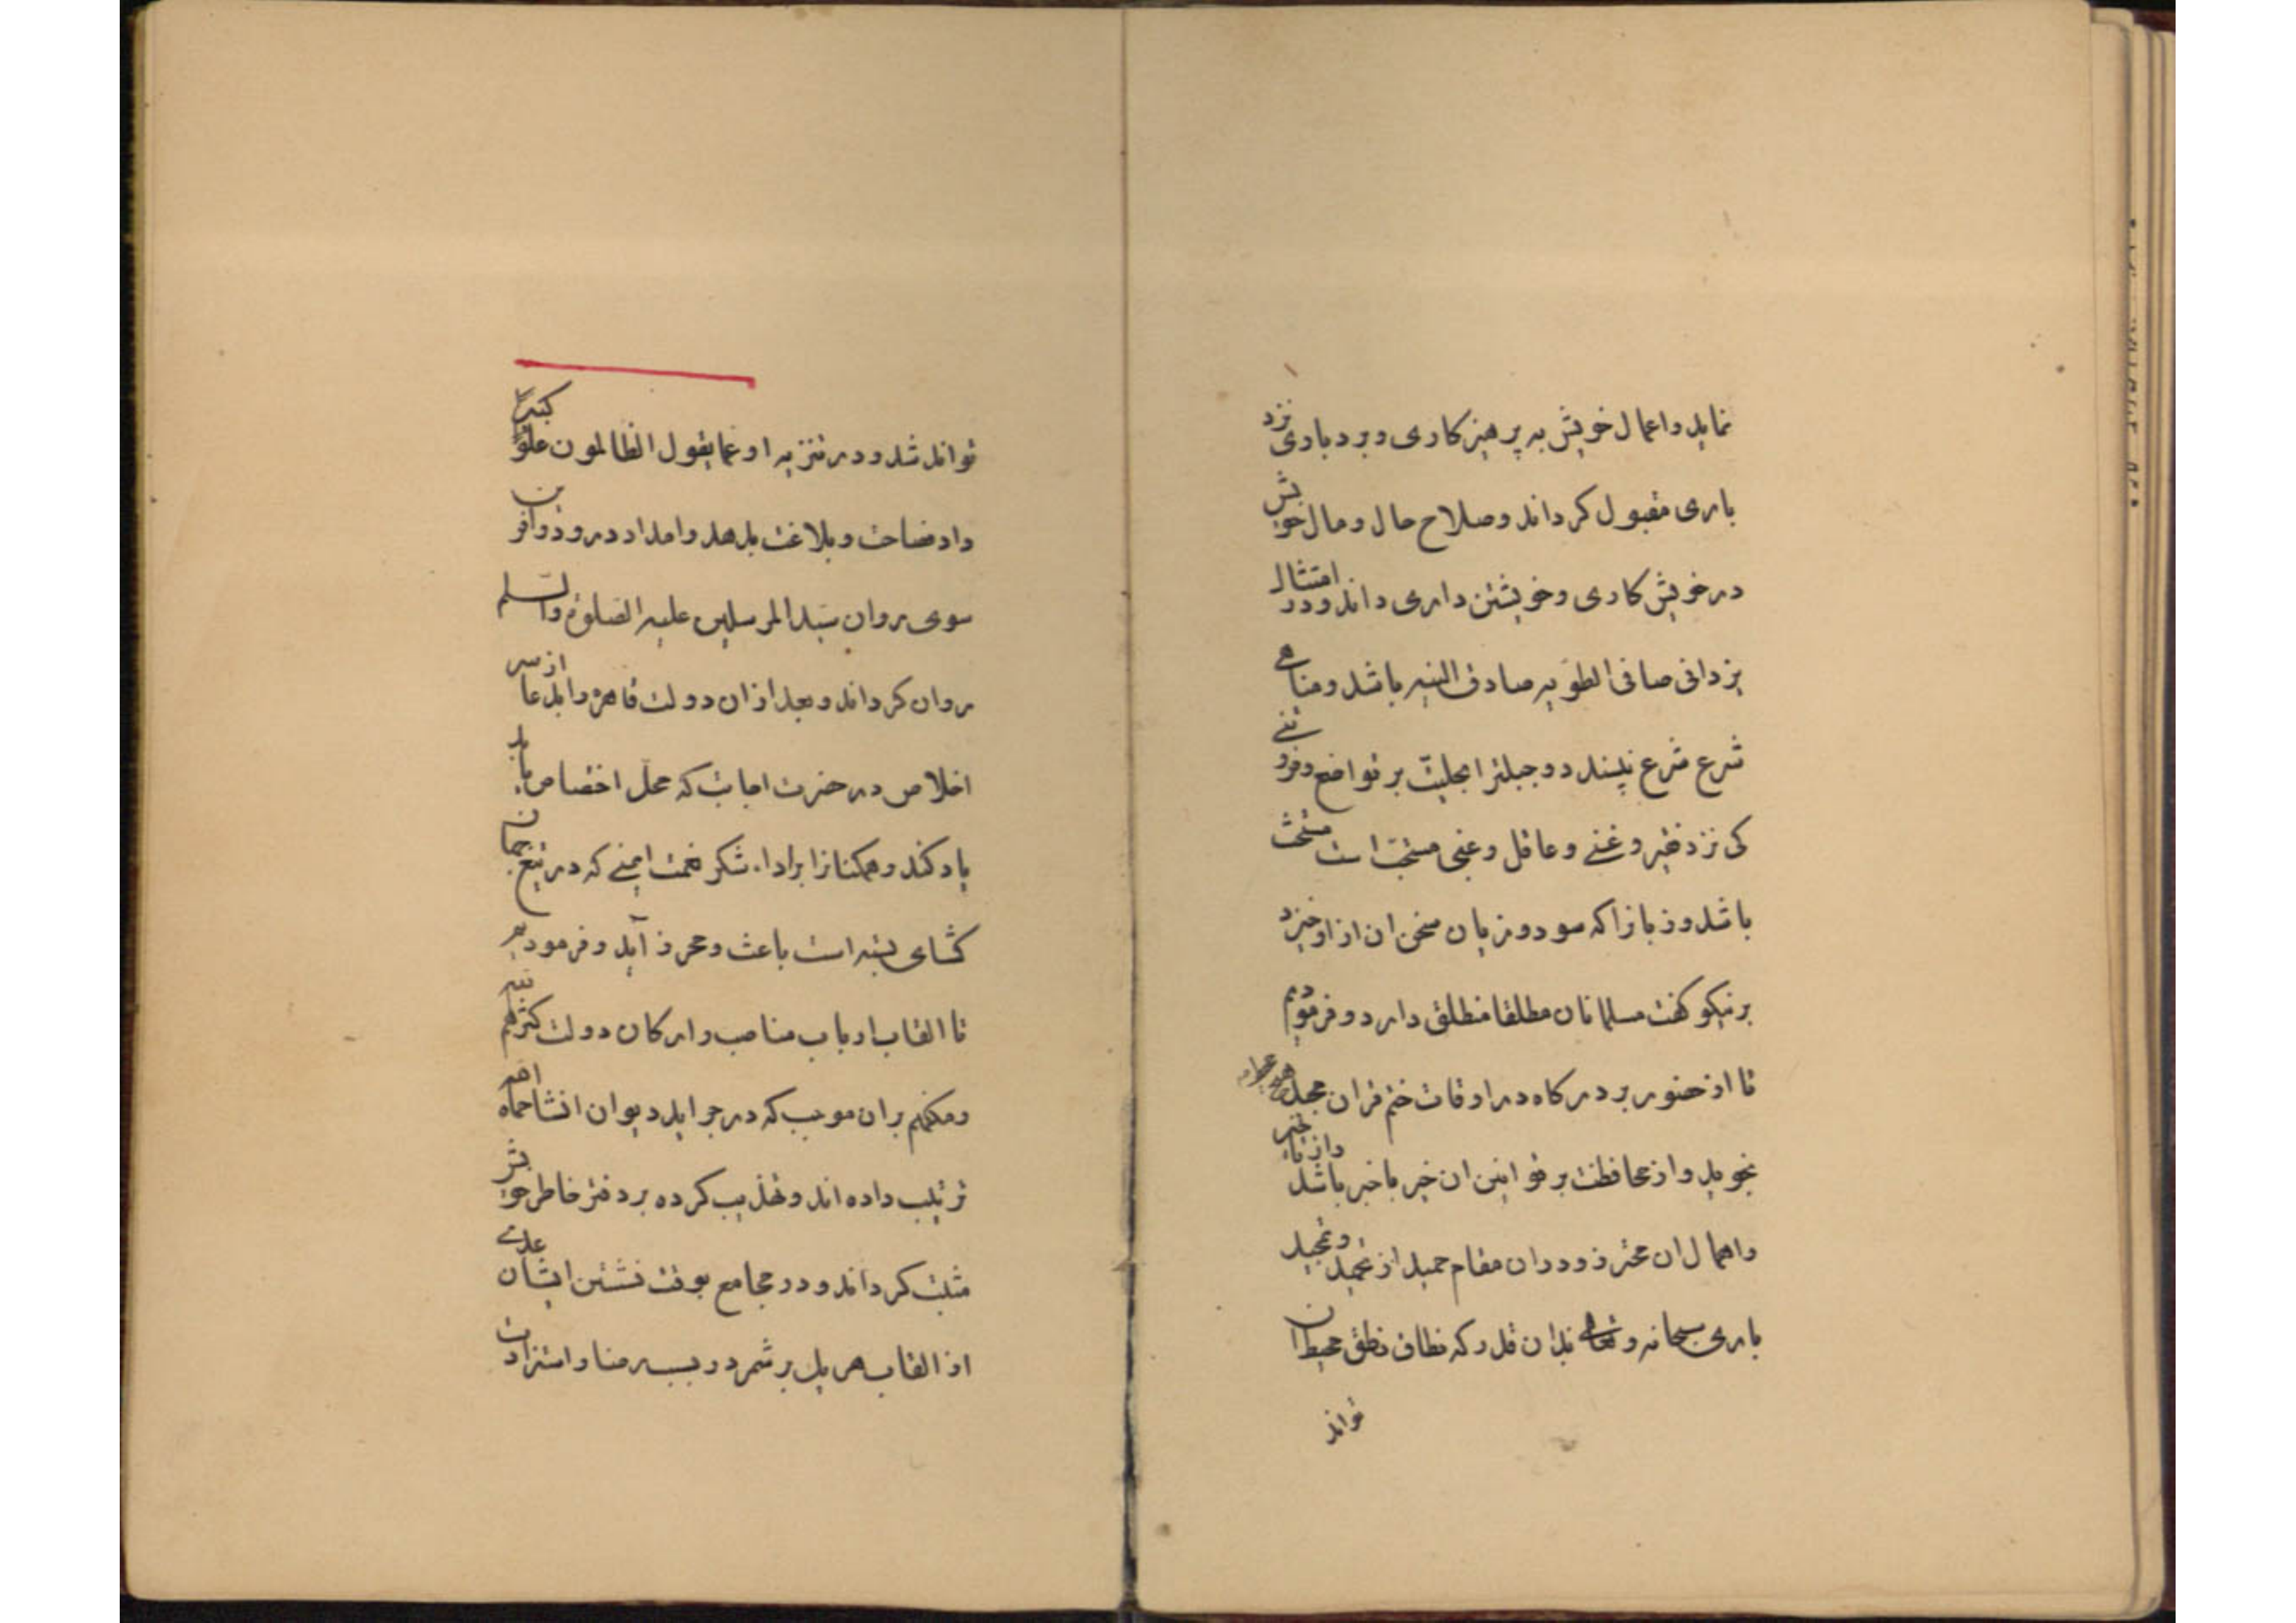 نماید و اعمال خویش به پرهیزکاری و بردباری نزد
باری مقبول کرداند و صلاح حال و مال خویش
در خویش کاری و خویشتن داری داند و در امتثال
یزدانی صافی الطویه صادق النیه باشد و مناهی
شرع شرع نپسند و جبلت بر تواضع و فروتنی
کی نزد فقیر و غنی و عاقل و غبی مستحب است مستحث
باشد و زبانرا که سود و زیان سخن ان از او خیزد
بر نیکو کفت مسلمانان مطلقا منطلق دارد و فرمودیم
تا از حضور بر درکاه در اوقات ختم قران مجید هیچ
نجوید و از محافظت بر قوانین ان خیر با خبر باشد
و اهمال ان محترز و در ان مقام حمید از تحمید و تمجید
باری سبحانه و تعالی بدان قدر که نطاق نطق محیط ان
تواند
تواند شد و در تنزیه او عما یقول الظالمون علوا کبیرا
داد فصاحت و بلاغت بدهد و امداد درود وافر
سوی روان سید المرسلین علیه الصلوة والسلم
روان کرداند و بعد از ان دولت قاهره را بدعا از سر
اخلاص در حضرت اجابت که محل اختصاص یابد
یاد کند و همکنانرا براداء شکر نعمت ایمنی که در تیغ جهان
کشای بسته است باعث و محرز آید و فرمودیم
تا القاب ارباب مناصب و ارکان دولت کثرهم الله
و مکنهم بران موجب که در جراید دیوان انشا حماه الله
ترتیب داده اند و تهذیب کرده بر دفتر خاطر خویش
مثبت کرداند و در مجامع بوقت نشستن ایشان علی
از القاب هر یک بر شمرد و بسر منا و استزادت